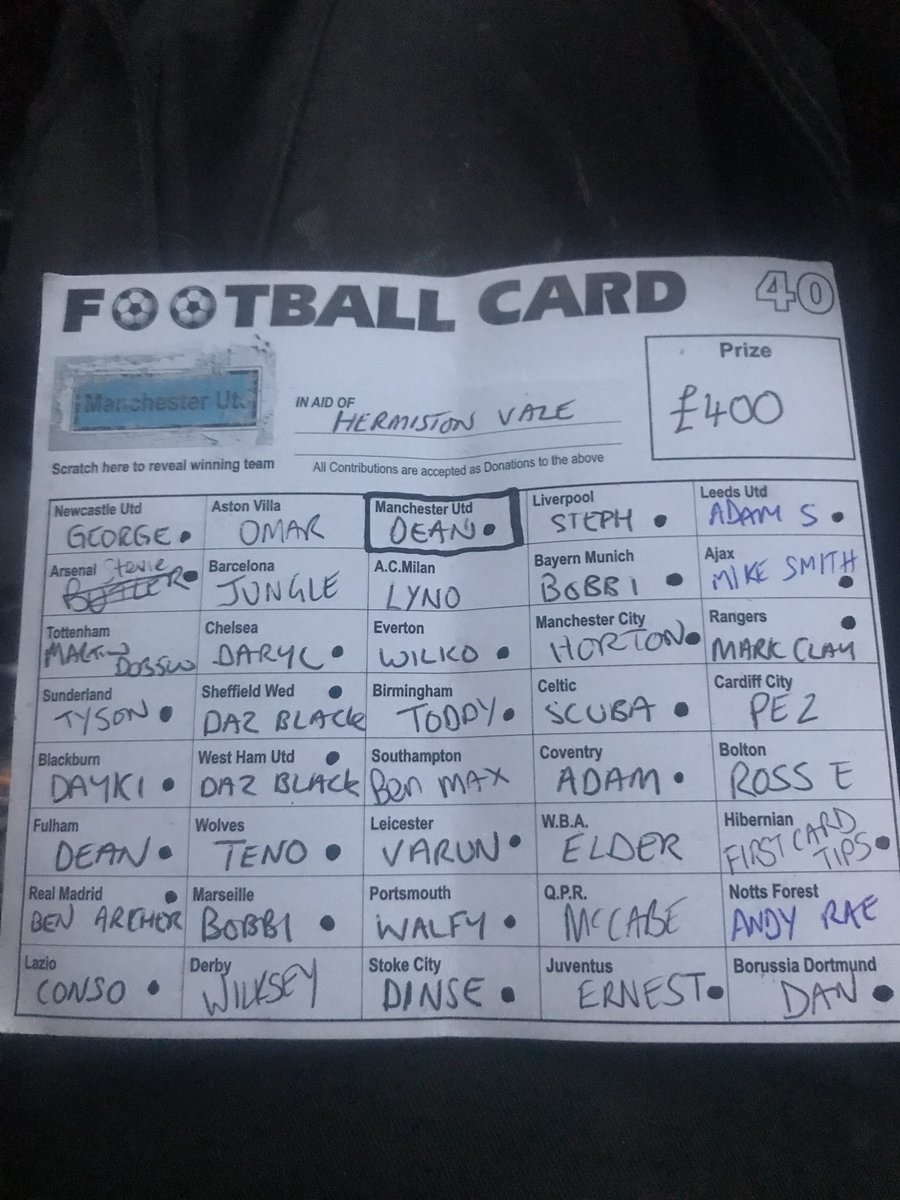 FOOTBALL CARD 40
Manchester Utd
Scratch here to reveal winning team
IN AID OF
HERMISTON VALE
All Contributions are accepted as Donations to the above
Prize
£400
Newcastle Utd Aston Villa Manchester Utd Liverpool Leeds Utd
GEORGE OMAR DEAN STEPH ADAM S
Arsenal Stevie Barcelona A.C.Milan Bayern Munich Ajax
BUTLER JUNGLE LYNO BOBBI MIKE SMITH
Tottenham Chelsea Everton Manchester City Rangers
MARTIN DARYL WILKO HORTON MARK CLAY
Sunderland Sheffield Wed Birmingham Celtic Cardiff City
TYSON DAZ BLACK TODDY SCUBA PEZ
Blackburn West Ham Utd Southampton Coventry Bolton
DAYKI DAZ BLACK BEN MAX ADAM ROSS E
Fulham Wolves Leicester W.B.A. Hibernian
DEAN TENO VARUN ELDER FIRST CARD
TIPS
Real Madrid Marseille Portsmouth Q.P.R. Notts Forest
BEN ARCHER BOBBI WALFY MCCABE ANDY RAE
Lazio Derby Stoke City Juventus Borussia Dortmund
CONSO WILKSEY DINSE ERNEST DAN